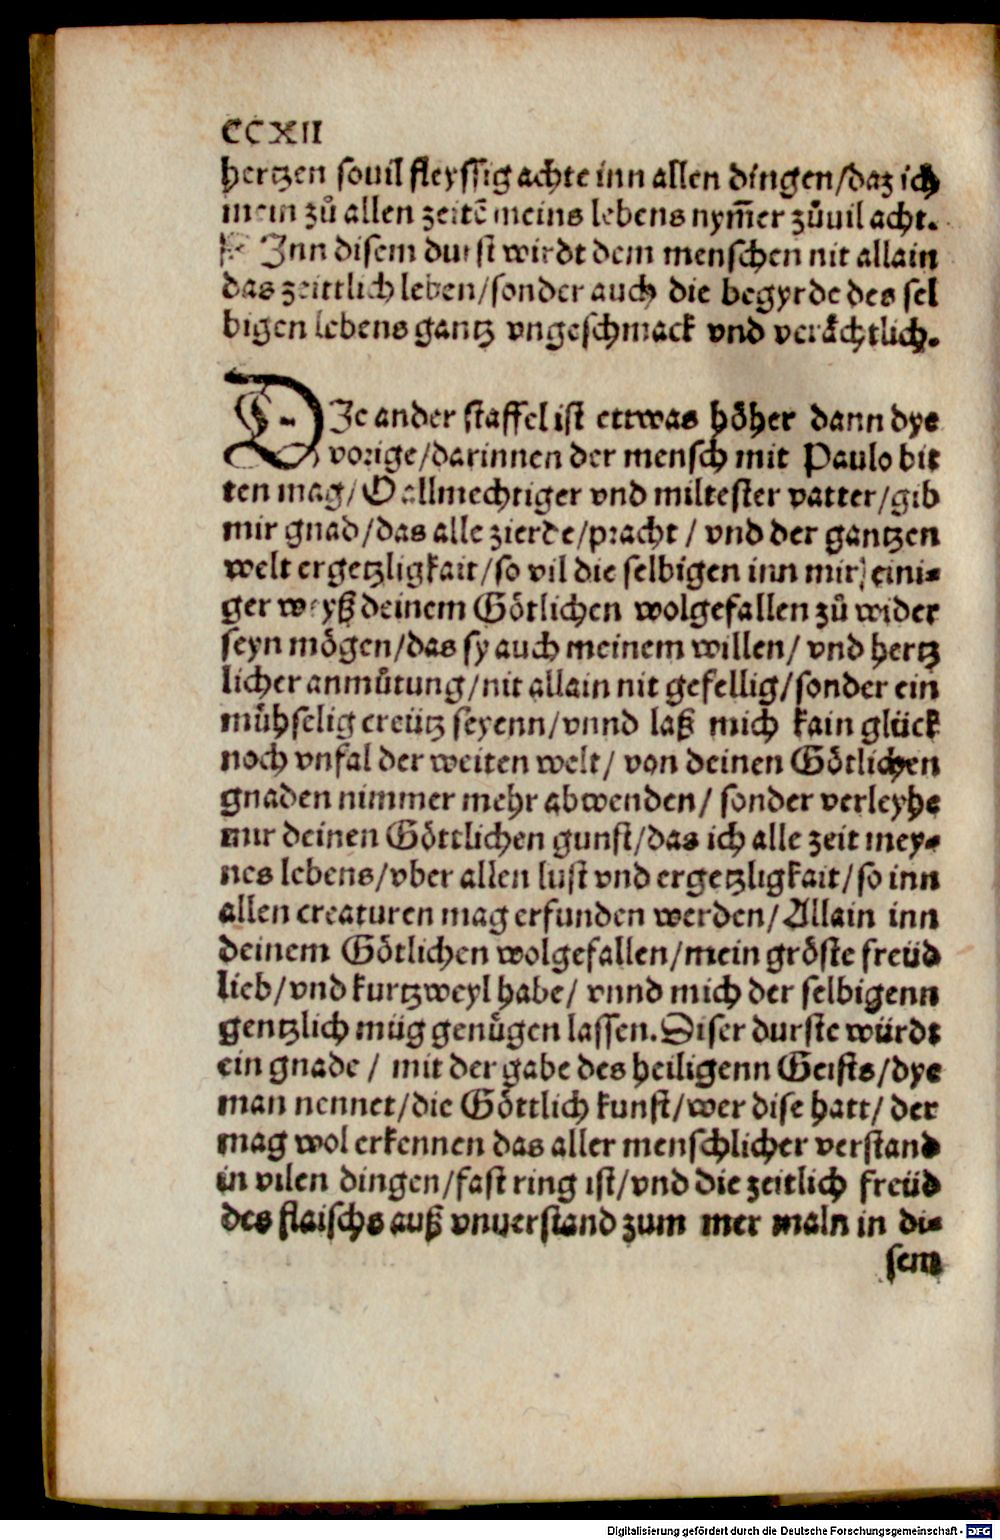 CCXII
hertzen souil fleyssig achte inn allen dingen/daz ich
mein zů allen zeitē meins lebens nym̄er zůuil acht.
Inn disem durst wirdt dem menschen nit allain
das zeittlich leben/sonder auch die begyrde des sel
bigen lebens gantz vngeschmack vnd verächtlich.
DIe ander staffel ist ettwas höher dann dye
vorige/darinnen der mensch mit Paulo bit
ten mag/ O allmechtiger vnd miltester vatter/gib
mir gnad/das alle zierde/pracht / vnd der gantzen
welt ergetzligkait/so vil die selbigen inn mir/ eini-
ger weyß deinem Götlichen wolgefallen zů wider
seyn mögen/das sy auch meinem willen/ vnd hertz
licher anmůtung/nit allain nit gefellig/sonder ein
mühselig creütz seyenn/vnnd laß mich kain glück
noch vnfal der weiten welt/ von deinen Götlichen
gnaden nimmer mehr abwenden/ sonder verleyhe
mir deinen Göttlichen gunst/das ich alle zeit mey-
nes lebens/vber allen lust vnd ergetzligkait/so inn
allen creaturen mag erfunden werden/Allain inn
deinem Götlichen wolgefallen/mein gröste freüd
lieb/vnd kurtzweyl habe/ vnnd mich der selbigenn
gentzlich müg genůgen lassen. Diser durste würdt
ein gnade / mit der gabe des heiligenn Geists/dye
man nennet/die Göttlich kunst/wer dise hatt/ der
mag wol erkennen das aller menschlicher verstand
in vilen dingen/fast ring ist/vnd die zeitlich freüd
des flaischs auß vnuerstand zum mer maln in di-
sem
Digitalisierung gefördert durch die Deutsche Forschungsgemeinschaft - DFG